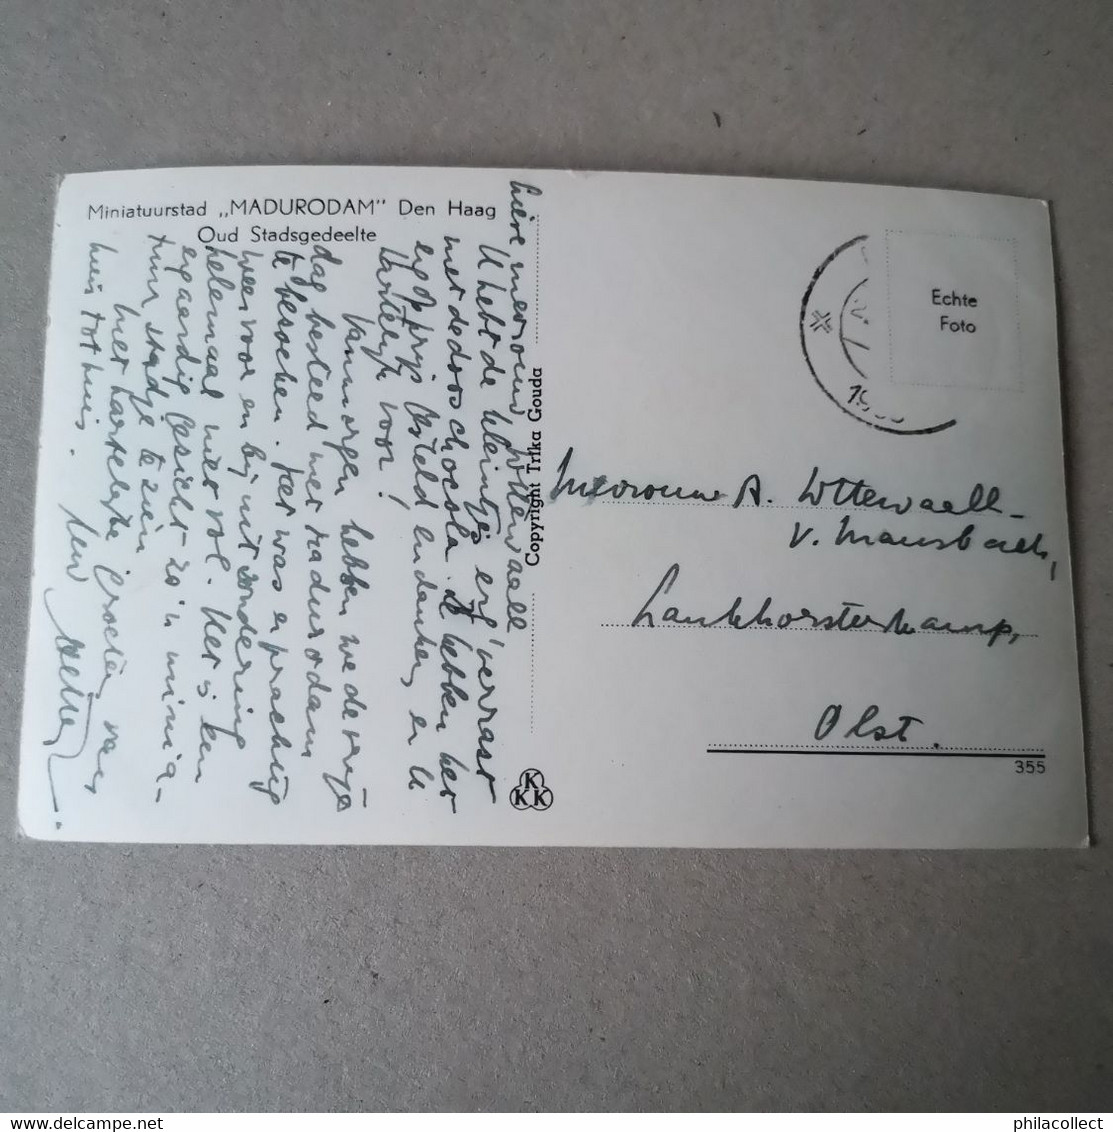 Miniatuurstad „MADURODAM" Den Haag
Oud Stadsgedeelte
Lieve mevrouw Wttewaall
U hebt de kleintjes erg verrast
met de doos chocola. Ze hebben het
erg op prijs gesteld en danken er U
hartelijk voor!
Van morgen hebben we de vrije
dag besteed met Madurodam
te bezoeken. Het was er prachtig
weer voor en bij uitzondering
helemaal niet vol. Het is een
eigaardig gezicht zo'n minia-
tuur stadje te zien.
Met hartelijke groeten van
huis tot huis. Uw
Copyright Trika Gouda
KKK
Echte
Foto
Mevrouw A. Wttewaall-
v. Mansbach,
Lankhorsterkamp,
Olst.
355
philacollect